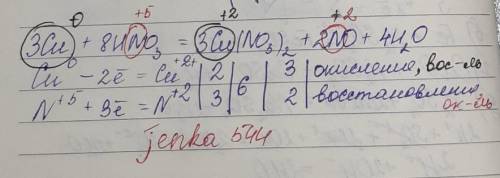 0 +5 +2 +2
3Cu + 8HNO₃ = 3Cu(NO₃)₂ + 2NO + 4H₂O
Cu⁰ - 2ē = Cu⁺²⁺ | 2 | 6 | 3 | окисление, вос-ль
N⁺⁵ + 3ē = N⁺² | 3 | | 2 | восстановление ок-ль
jenka 544